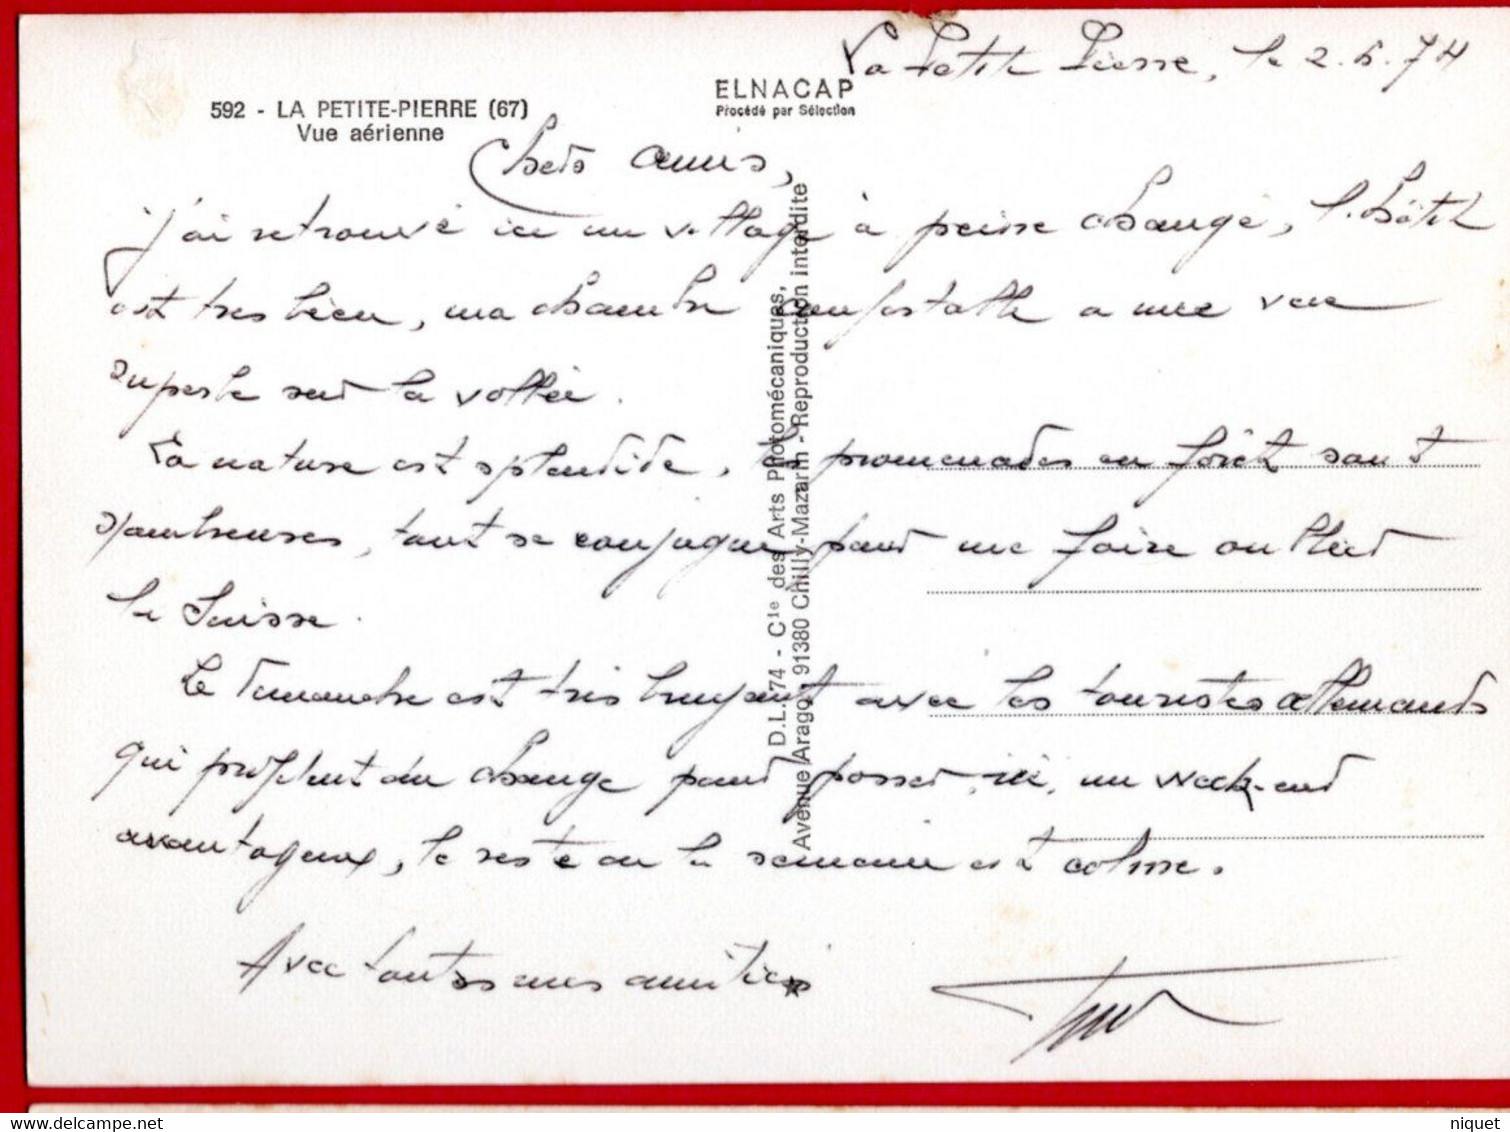 La Petite Pierre, le 2.6.74
592 - LA PETITE-PIERRE (67)
Vue aérienne
ELNACAP
Procédé par Sélection
Chers amis,
j'ai retrouvé ici un village à peine changé, l'hôtel
est très bien, ma chambre confortable a une vue
superbe sur la vallée.
La nature est splendide, les promenades en forêt sont
nombreuses, tout se conjugue pour me faire oublier
la Suisse.
Le dimanche est très bruyant avec les touristes allemands
qui profitent du change pour passer ici un week-end
avantageux, le reste de la semaine est calme.
Avec toutes mes amitiés
D.L. 74 - Cie des Arts Photomécaniques,
Avenue Arago, 91380 Chilly-Mazarin - Reproduction interdite
niquet